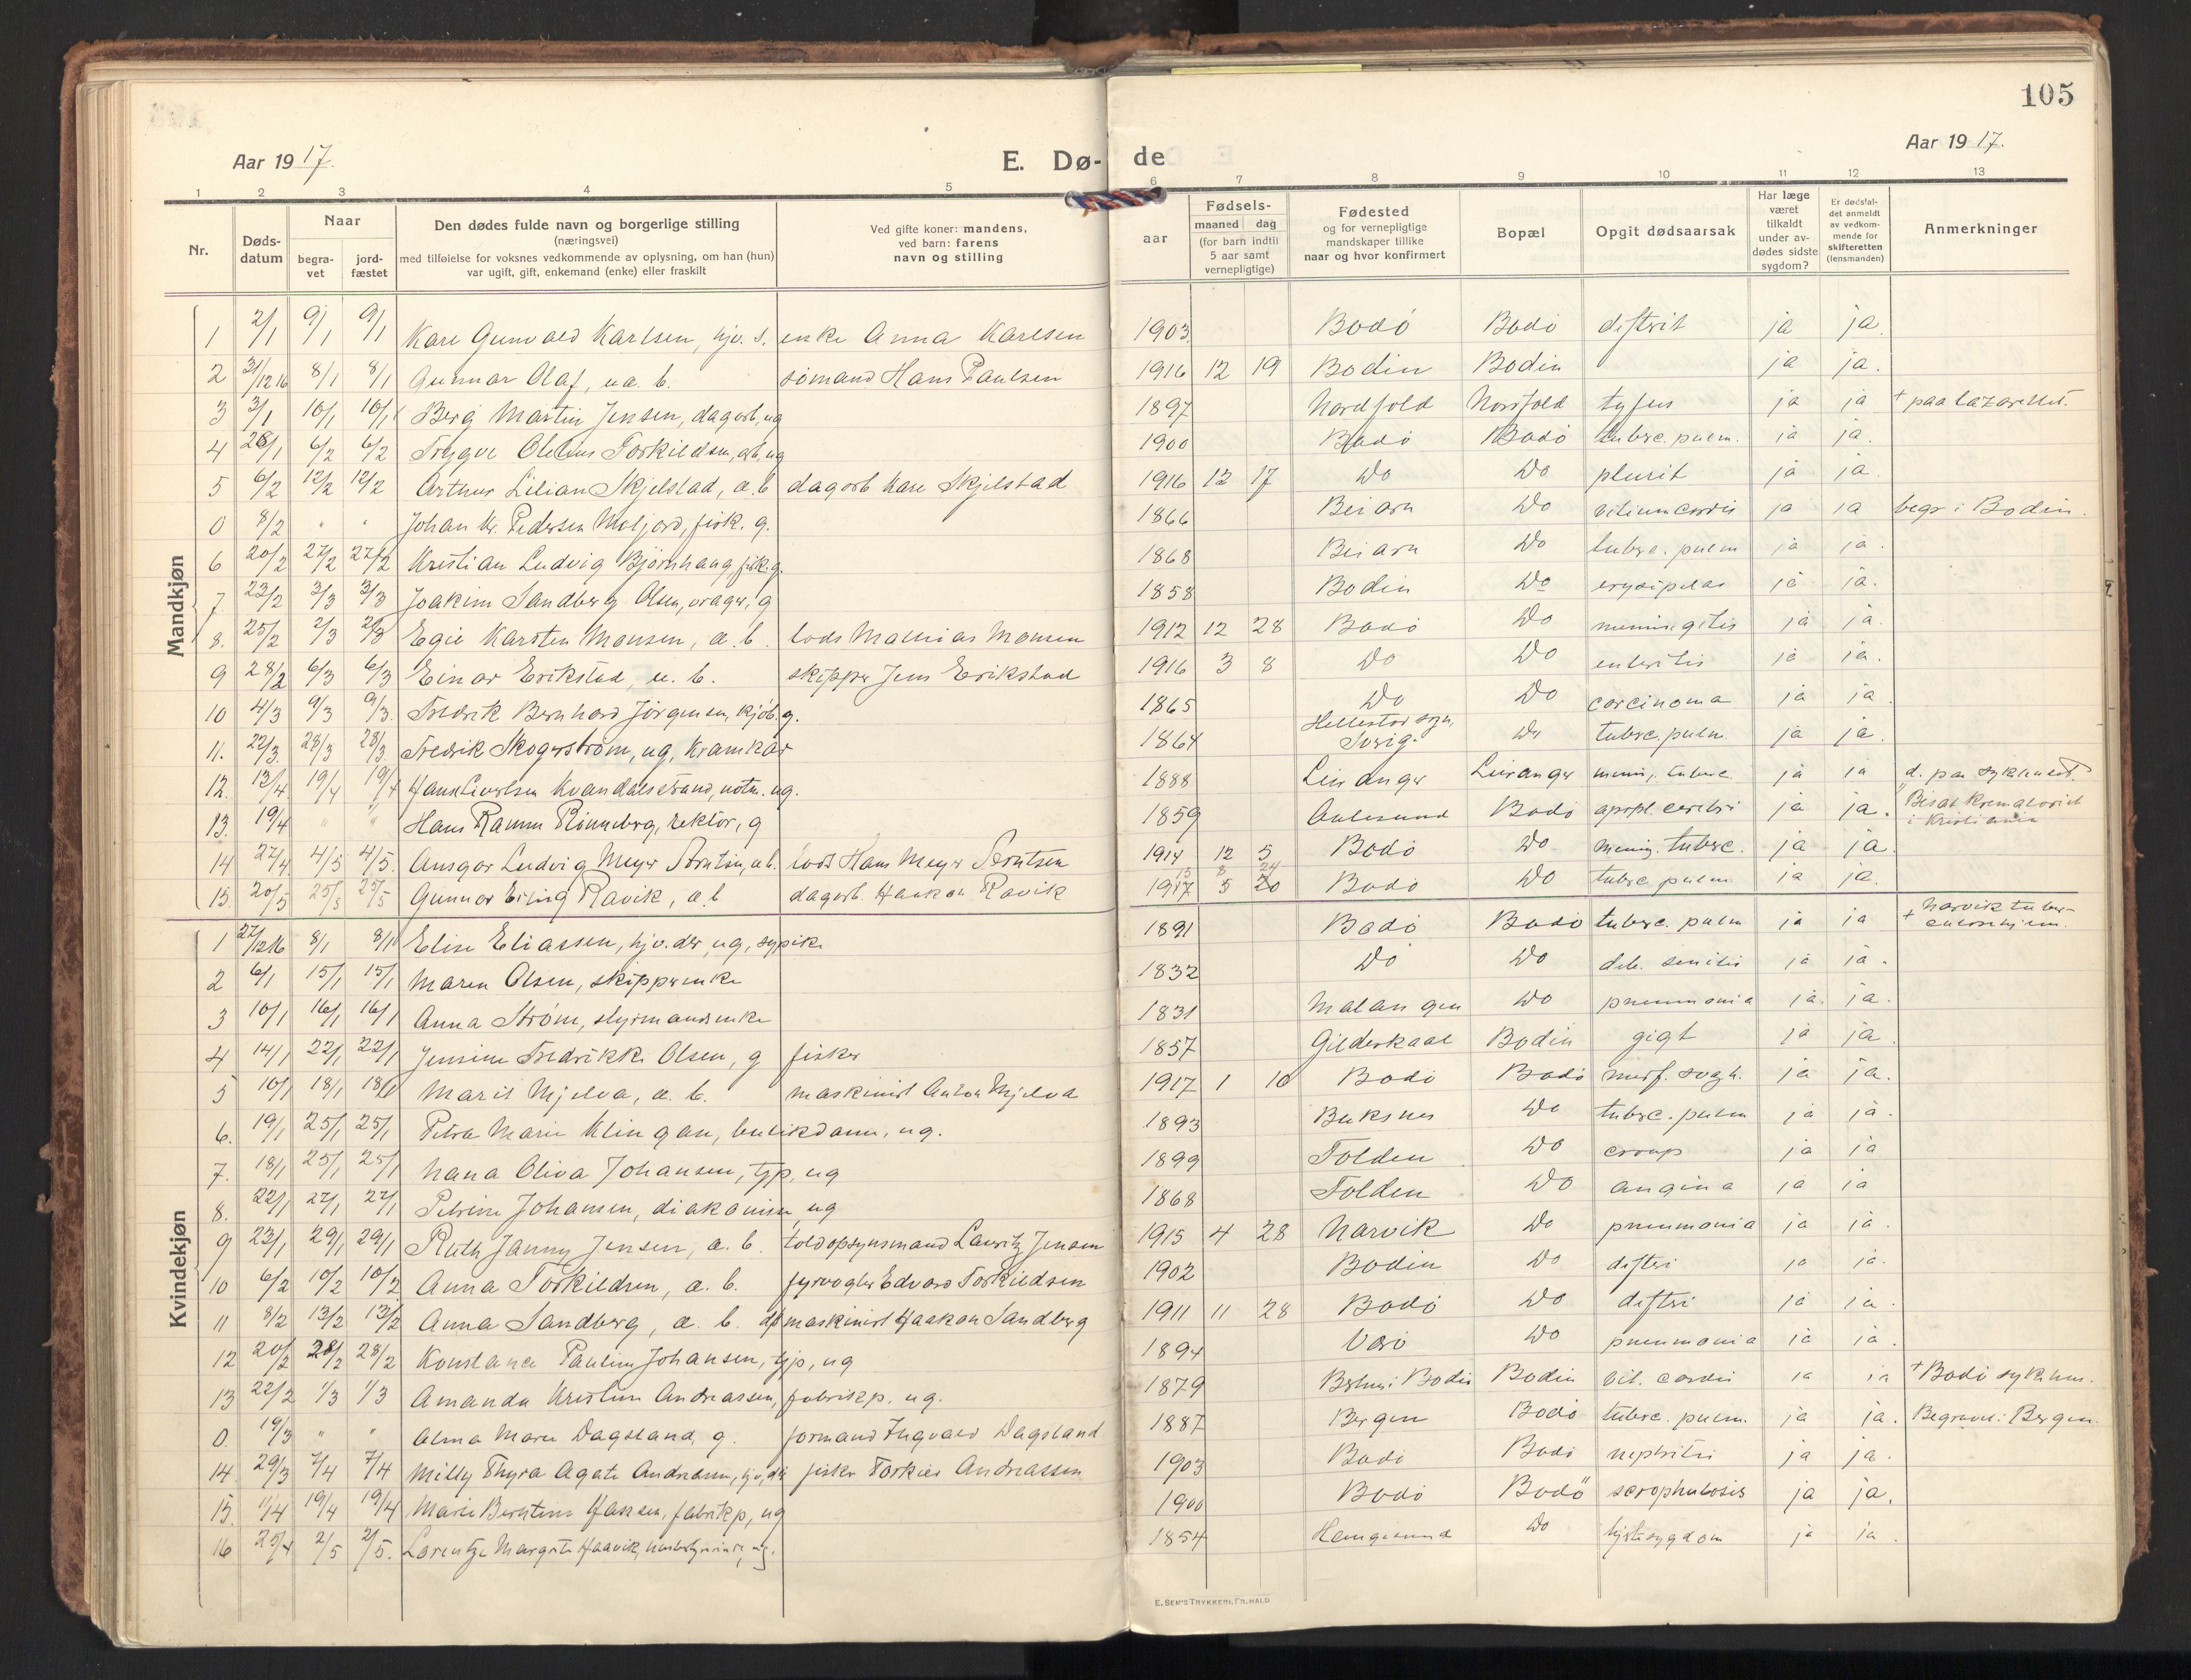 105
Aar 1917.
E. Dø-
de
Aar 1917.
1 2 3 4 5 6 7 8 9 10 11 12 13
Nr.
Døds-
datum
Naar
begra-
vet
jord-
fæstet
Den dødes fulde navn og borgerlige stilling
(næringsvei)
med tilføielse for voksnes vedkommende av oplysning, om han (hun)
var ugift, gift, enkemand (enke) eller fraskilt
Ved gifte koner: mandens,
ved barn: farens
navn og stilling
aar
Fødsels-
maaned dag
(for barn indtil
5 aar samt
vernepligtige)
Fødested
og for vernepligtige
mandskaper tillike
naar og hvor konfirmert
Bopæl
Opgit dødsaarsak
Har læge
været
tilkaldt
under av-
dødes sidste
sygdom?
Er dødsfal-
det anmeldt
av vedkom-
mende for
skifteretten
(lensmanden)
Anmerkninger
Mandkjøn
1 2/1 9/1 9/1 Kare Gunvald Karlsen, hjv. s. enke Anna Karlsen 1903 Bodø Bodø difterit ja ja.
2 31/12 16 8/1 8/1 Gunnar Olaf, u. b. sømand Hans Paulsen 1916 12 19 Bodin Bodin ja ja.
3 3/1 10/1 10/1 Berg Martin Jensen, dagarb, ug 1897 Nordfold Nordfold tyfus ja ja + paa lazarettet.
4 28/1 6/2 6/2 Trygve Torkildsen, arb. ug 1900 Bodø Bodø tuberc. pulm. ja ja.
5 6/2 12/2 12/2 Arthur Lilian Skjelstad, æ. b dagarb Kare Skjelstad 1916 12 17 Do Do plurit ja ja.
0 8/2 " " Johan Kr. Pedersen Moljord, fisk. g. 1866 Beiarn Do vitium cordis ja ja begr i Bodin.
6 20/2 27/2 27/2 Kristian Ludvig Bjørnhaug, fisk. g. 1868 Beiarn Do tuberc. pulm ja ja.
7 23/2 3/3 3/3 Joakim Sandberg Olsen, vrager, g 1858 Bodin Do erysipelas ja ja.
8. 25/2 2/3 2/3 Egil Karsten Monsen, æ. b. lods Mathias Monsen 1912 12 28 Bodø Do meningitis ja ja.
9 28/2 6/3 6/3 Einar Erikstad, u. b. skipper Jens Erikstad 1916 3 8 Do Do enteritis ja ja.
10 4/3 9/3 9/3. Fredrik Bernhard Jørgensen, kjøb. g. 1865 Do Do carcinoma ja ja
11. 22/3. 28/3 28/3. Fredrik Skogerstrøm, ug, Kramkar 1864 Hellestad sogn, Sverig. Do tuberc. pulm. ja ja.
12. 13/4 19/4 19/4 Hans Sivertsen Kvandalstrand, notm. ug. 1888 Leiranger Leiranger menin. tuberc. ja ja d. paa sykehuset.
13. 19/4 " " Hans Ramm Rønneberg, rektor, g 1859 Aalesund Bodø apopl. cerebri ja ja. Bisat Krematoriet
i Kristiania
14 27/4. 4/5 4/5. Ansgar Ludvig Meyer Berntsen, æ b. lods Hans Meyer Berntsen 1914 12 5 Bodø Do mening. tuberc. ja ja
15. 20/5 25/5 25/5 Gunnar Erling Ravik, æ. b dagarb. Haakon Ravik 1917 5 20 Bodø Do tuberc pulm. ja ja.
Kvindekjøn
1 27/12 16 8/1 8/1 Elise Eliassen, hjv. dtr, ug, sypike 1891 Bodø Bodø tuberc. pulm ja ja + Narvik tuber-
culosehjem.
2 6/1 15/1 15/1 Maren Olsen, skipperenke 1832 Do Do deb. senilis ja ja.
3 10/1 16/1 16/1 Anna Strøm, styrmandsenke 1831 Malangen Do pneumonia ja. ja.
4 14/1 22/1 22/1 Jensine Fredrikke Olsen, g fisker 1857 Gilderkaal Bodin gigt ja ja
5 10/1 18/1 18/1 Marit Mjelva, æ. b. maskinist Anton Mjelva 1917 1 10 Bodø Bodø medf. svagh. ja ja.
6. 19/1 25/1 25/1 Petra Marie Klingan, butikdame, ug. 1893 Buksnes Do tuberc. pulm ja ja.
7. 18/1 25/1 25/1 Nana Oliva Johansen, tjp, ug 1899 Folden Do croup ja ja
8. 22/1 27/1 27/1 Petrine Johansen, diakonisse, ug 1868 Folden Do angina ja ja
9 23/1 29/1 29/1 Ruth Janny Jensen, æ. b. toldopsynsmand Lauritz Jensen 1915 4 28 Narvik Do pneumonia ja ja.
10 6/2 10/2 10/2 Anna Torkildsen, æ. b. fyrvogter Edvard Torkildsen 1902 Bodin Do difteri ja ja.
11 8/2 13/2 13/2 Anna Sandberg, æ. b. maskinist Haakon Sandberg 1911 11 28 Bodø Do difteri ja ja.
12 20/2 28/2 28/2 Konstance Pauline Johansen, tjp, ug 1894 Værø Do pneumonia ja ja.
13 22/2 1/3 1/3 Amanda Kristine Andreassen, fabrikp. ug. 1879 Bodin vit. cordis ja ja + Bodø sykehus.
0. 19/3 " " Alma Marie Dagsland, g. formand Ingvald Dagsland 1887 Bergen Bodø tuberc. pulm. ja ja. Begravet i Bergen.
14 29/3 7/4 7/4 Milly Thyra Agate Andreassen, hjv, dtr fisker Torkild Andreassen 1903 Bodø Bodø nephritis ja ja.
15. 11/4 19/4 19/4 Marie Berntine Hansen, fabrikp, ug 1900 Bodø Bodø scrophulosis ja ja.
16 25/4 2/5 2/5. Lorentze Margrete Haavik, husbestyrerinde, ug. 1854 Haugesund Do hjertesygdom ja ja.
E. SEM'S TRYKKERI, FR.HALD